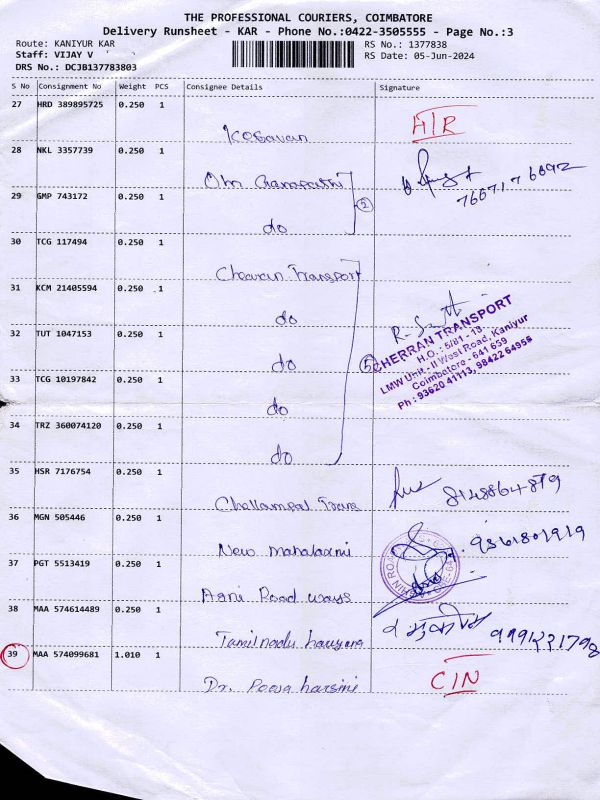 THE PROFESSIONAL COURIERS, COIMBATORE
Delivery Runsheet - KAR - Phone No.:0422-3505555 - Page No.:3
Route: KANIYUR KAR
RS No.: 1377838
Staff: VIJAY V
RS Date: 05-Jun-2024
DRS No.: DCJB137783803
S No Consignment No Weight PCS Consignee Details Signature
27 HRD 389895725 0.250 1
Kesavan H/R
28 NKL 3357739 0.250 1
Om Ganapathi 76671 76692
29 GMP 743172 0.250 1
do 2
30 TCG 117494 0.250 1
Cheran Transport
31 KCM 21405594 0.250 1
do
32 TUT 1047153 0.250 1
do 5
CHERRAN TRANSPORT
H.O. : 5/81 - 13
LMW Unit - II West Road, Kaniyur
Coimbatore - 641 659
Ph : 93620 41113, 98422 64956
33 TCG 10197842 0.250 1
do
34 TRZ 360074120 0.250 1
do
35 HSR 7176754 0.250 1
Chellampal Trans 8148864819
36 MGN 505446 0.250 1
New Mahalaxmi 9361801919
37 PGT 5513419 0.250 1
Agni Road ways
38 MAA 574614489 0.250 1
Tamilnadu
39 MAA 574099681 1.010 1
Dr. C/N